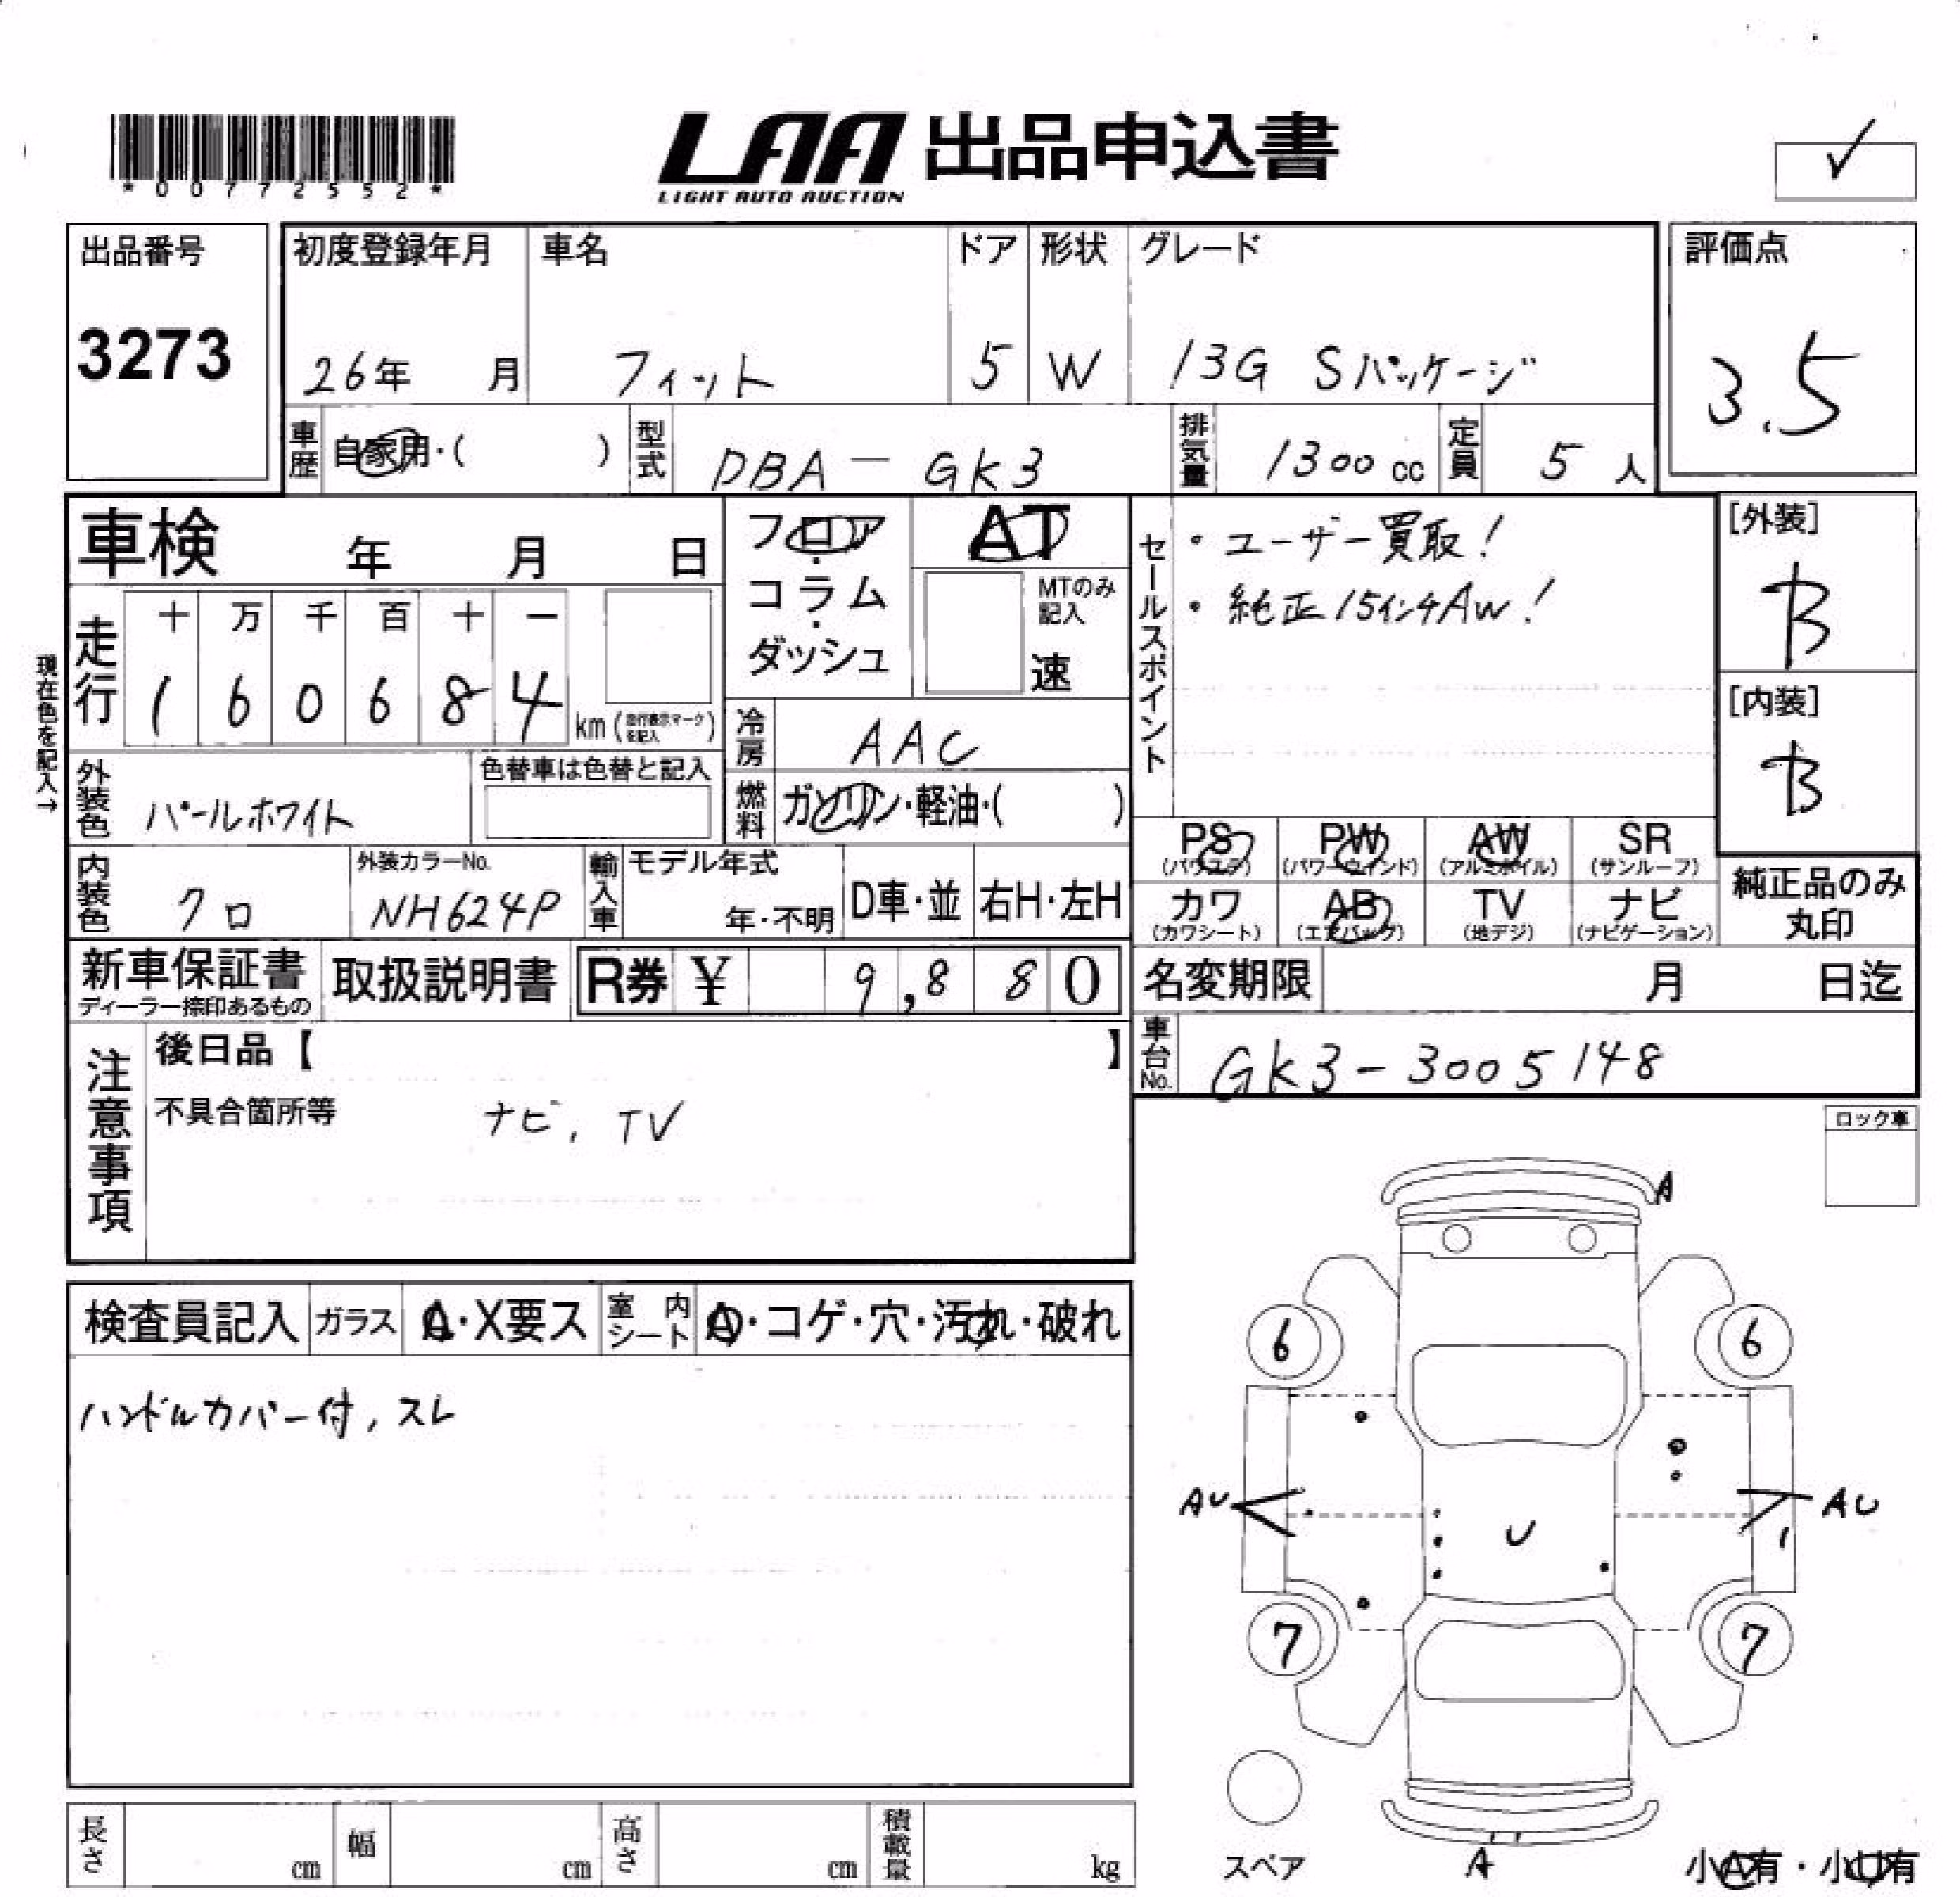 *00772552*
LAA 出品申込書
LIGHT AUTO AUCTION
✓
出品番号
3273
初度登録年月
26年 月
車名
フィット
ドア
5
形状
W
グレード
13G Sパッケージ
評価点
3.5
車歴
自家用・( )
型式
DBA-GK3
排気量
1300cc
定員
5人
車検 年 月 日
フロア・
コラム・
ダッシュ
AT
MTのみ
記入
速
セールスポイント
・ユーザー買取!
・純正15インチAW!
[外装]
B
[内装]
B
現在色を記入→
走行
十 万 千 百 十 一
1 6 0 6 8 4
km(走行表示マークを記入)
冷房
AAC
外装色
パールホワイト
色替車は色替と記入
燃料
ガソリン・軽油・( )
PS
(パワステ)
PW
(パワーウインド)
AW
(アルミホイル)
SR
(サンルーフ)
カワ
(カワシート)
AB
(エアバック)
TV
(地デジ)
ナビ
(ナビゲーション)
純正品のみ
丸印
内装色
クロ
外装カラーNo.
NH624P
輸入車
モデル年式
年・不明
D車・並
右H・左H
新車保証書
ディーラー捺印あるもの
取扱説明書
R券 ¥ 9,880
名変期限 月 日迄
車台No.
GK3-3005148
注意事項
後日品【 】
不具合箇所等
ナビ, TV
ロック車
検査員記入
ガラス
A・X要ス
室内シート
A・コゲ・穴・汚れ・破れ
ハンドルカバー付, スレ
A
6
6
AU
U
AU
7
7
スペア
A
小A有・小U有
長さ
cm
幅
cm
高さ
cm
積載量
kg